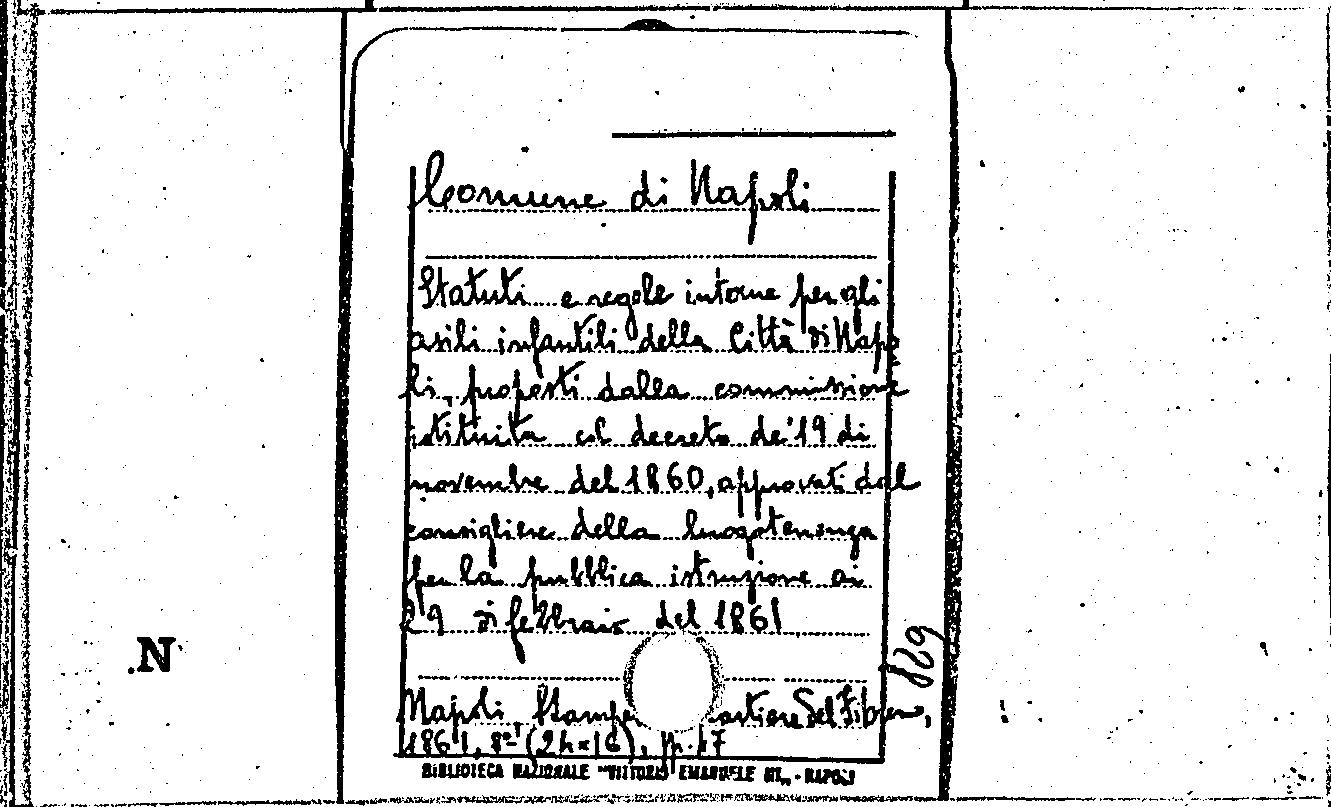 Comune di Napoli
Statuti e regole interne per gli
asili infantili della Città di Napo
li, proposti dalla commissione
istituita col decreto de' 19 di
novembre del 1860, approvati dal
consigliere della luogotenenza
per la pubblica istruzione ai
29 di febbraio del 1861
Napoli, Stampe cartiere del Fibreno,
1861, 8º (24×16), pp. 17
829
.N
BIBLIOTECA NAZIONALE "VITTORIO EMANUELE III„ - NAPOLI